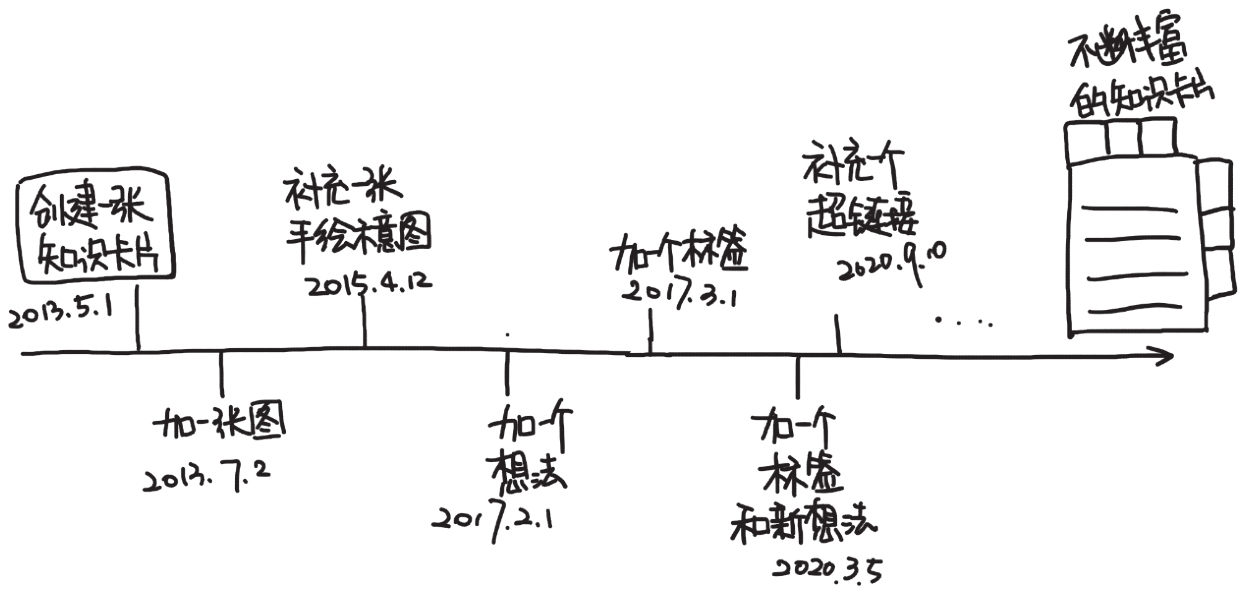 创建一张
知识卡片
2013.5.1
加一张图
2013.7.2
补充一张
手绘示意图
2015.4.12
加一个
想法
2017.2.1
加个标签
2017.3.1
加一个
标签
和新想法
2020.3.5
补充个
超链接
2020.9.10
....
不断丰富
的知识卡片